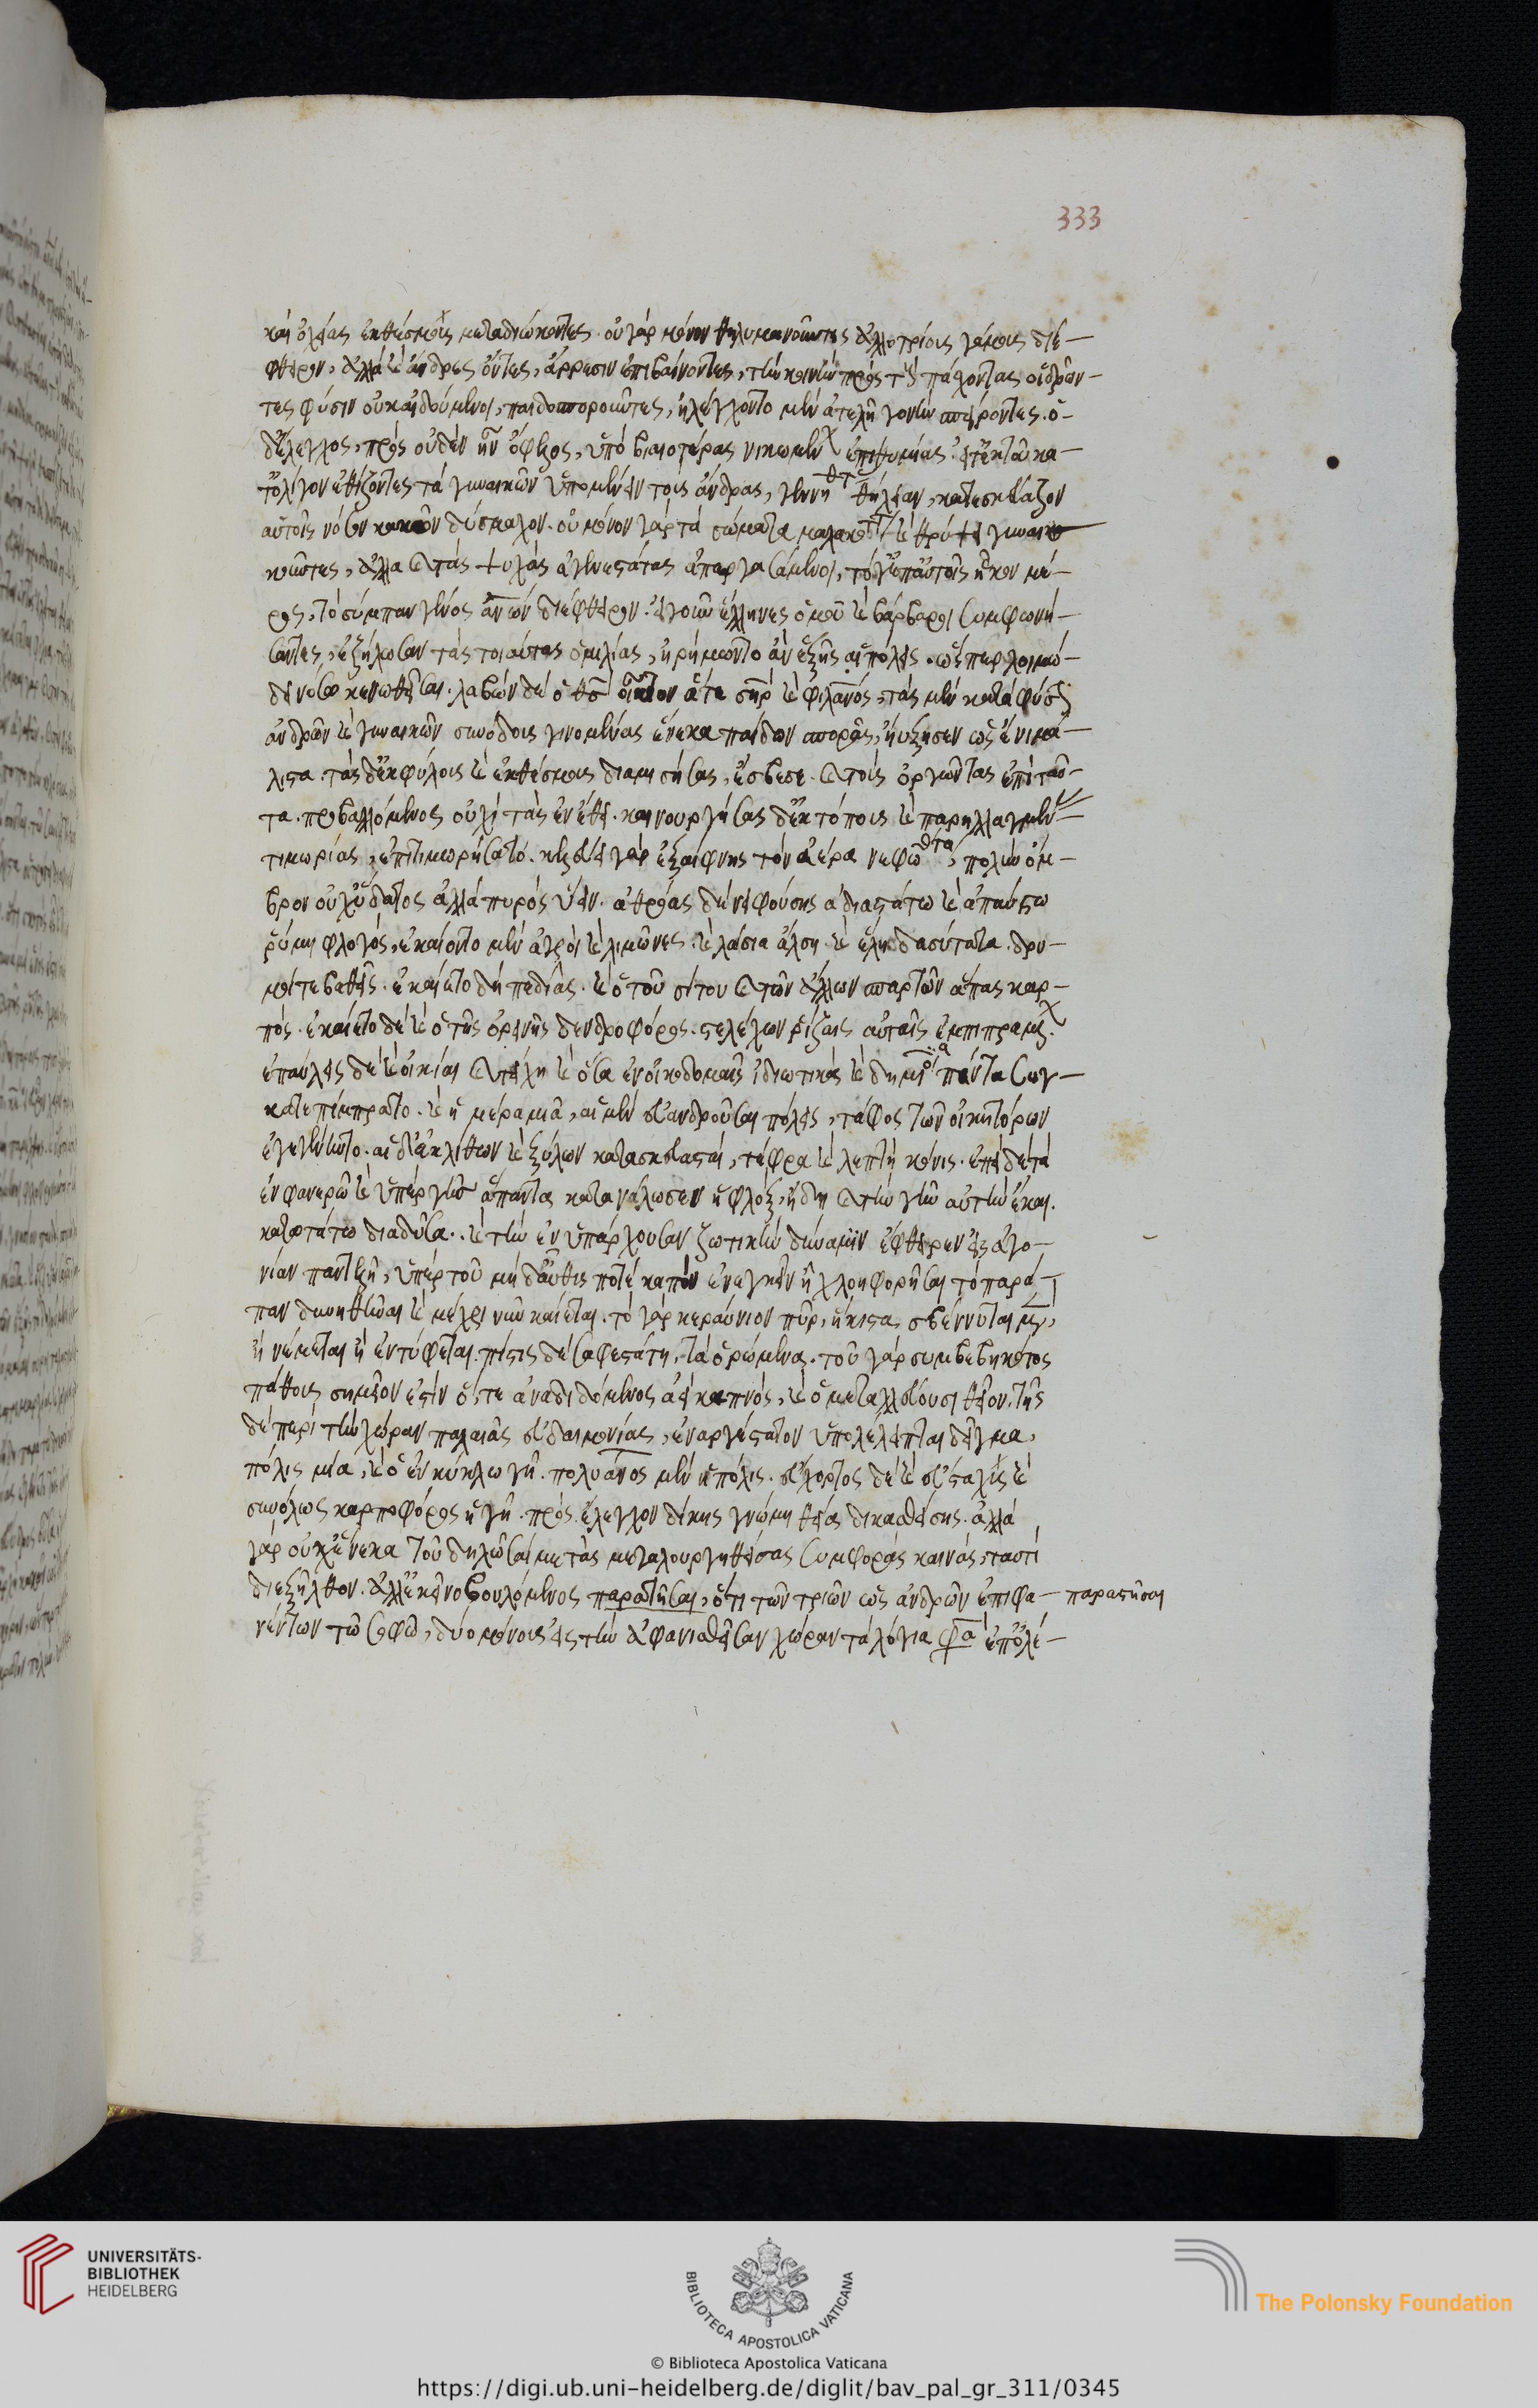 καὶ ὀχείας ἐκθέσμους μεταδιώκοντες. οὐ γὰρ μόνον θηλυμανοῦντες ἀλλοτρίους γάμους διέ-
φθειρον, ἀλλὰ καὶ ἄνδρες ὄντες, ἄρρεσιν ἐπιβαίνοντες, τὴν κοινὴν πρὸς τοὺς πάσχοντας οἱ δρῶν-
τες φύσιν οὐκ αἰδούμενοι, παιδοσποροῦντες, ἠλέγχοντο μὲν ἀτελῆ γονὴν σπείροντες. ὁ
δ᾽ἔλεγχος, πρὸς οὐδὲν ἦν ὄφελος, ὑπὸ βιαιοτέρας νικωμένων ἐπιθυμίας. εἶτ᾽ἐκ τοῦ κα-
τ᾽ὀλίγον ἐθίζοντες τὰ γυναικῶν ὑπομένειν τοὺς ἄνδρας, γεννηθέντας θήλειαν, κατεσκεύαζον
αὐτοῖς νόσον κακὸν δύσμαχον. οὐ μόνον γὰρ τὰ σώματα μαλακότητι καὶ θρύψει γυναι
κοῦντες, ἀλλὰ καὶ τὰς ψυχὰς ἀγενεστάτας ἀπεργασάμενοι, τό γ᾽ἐπ᾽αὐτοῖς ἧκον μέ-
ρος, τὸ σύμπαν γένος ἀνων διέφθειρον. εἰ γοῦν ἕλληνες ὁμοῦ καὶ βάρβαροι συμφωνή-
σαντες, ἐζήλωσαν τὰς τοιαύτας ὁμιλίας, ἠρήμωντο ἂν ἑξῆς αἱ πόλεις. ὥσπερ λοιμώ-
δει νόσῳ κενωθεῖσαι. λαβὼν δὲ ὁ θς οἶκτον ἅτε σηρ καὶ φιλανος, τὰς μὲν κατὰ φύσιν
ἀνδρῶν καὶ γυναικῶν συνόδους γινομένας ἕνεκα παίδων σπορᾶς, ηὔξησεν ὡς ἔνι μά-
λιστα. τὰς δ᾽ἐκφύλους καὶ ἐκθέσμους διαμισήσας, ἔσβεσε. καὶ τοὺς ὀργῶντας ἐπὶ ταῦ-
τα προβαλλόμενος οὐχὶ τὰς ἐν ἔθει. καινουργήσας δ᾽ἐκτόπους καὶ παρηλλαγμένας
τιμωρίας, ἐτιμωρήσατο. κελεύει γὰρ ἐξαίφνης τὸν ἀέρα νεφωθέντα, πολὺν ὄμ-
βρον οὐχ ὕδατος ἀλλὰ πυρὸς ὕειν. ἀθρόας δὲ νιφούσης ἀδιαστάτῳ καὶ ἀπαύστῳ
ῥύμῃ φλογός, ἐκαίοντο μὲν ἀγροὶ καὶ λειμῶνες. καὶ λάσια ἄλση. καὶ ἕλη δασύτατα. δρυ-
μοί τε βαθεῖς. ἐκαίετο δὴ πεδιάς. καὶ ὁ τοῦ σίτου καὶ τῶν ἄλλων σπαρτῶν ἅπας καρ-
πός. ἐκαίετο δὲ καὶ ὁ τῆς ὀρεινῆς δενδροφόρος. στελέχων ῥίζαις αὐταῖς ἐμπιπραμένων.
ἐπαύλεις δὲ καὶ οἰκίαι καὶ τείχη καὶ ὅσα ἐν οἰκοδομαῖς ἰδιωτικὰ καὶ δημόσια πάντα συγ-
κατεπίμπρατο. καὶ ἡμέρα μιᾶ, αἱ μὲν εὐανδροῦσαι πόλεις, τάφος τῶν οἰκητόρων
ἐγεγένηντο. αἱ δ᾽ἐκ λίθων καὶ ξύλων κατασκευασταὶ, τέφρα καὶ λεπτὴ κόνις. ἐπεὶ δὲ τὰ
ἐν φανερῷ καὶ ὑπὲρ γῆς ἅπαντα κατανάλωσεν ἡ φλόξ, ἤδη καὶ τὴν γῆν αὐτὴν ἔκαι.
κατωτάτω διαδῦσα. καὶ τὴν ἐνυπάρχουσαν ζωτικὴν δύναμιν ἔφθειρεν εἰς ἀγο-
νίαν παντελῆ, ὑπὲρ τοῦ μὴ δ᾽αὖθίς ποτε καρπὸν ἐνεγκεῖν ἢ χλοηφορῆσαι τὸ παρά-
παν δυνηθῆναι καὶ μέχρι νῦν καίεται. τὸ γὰρ κεραύνιον πῦρ, ἥκιστα σβεννύμενον,
ἢ νέμεται ἢ ἐντύφεται. πίστις δὲ σαφεστάτη, τὰ ὁρώμενα. τοῦ γὰρ συμβεβηκότος
πάθους σημεῖον ἐστὶν ὅ, τε ἀναδιδόμενος ἀεὶ καπνός, καὶ ὃ μεταλλεύουσι θεῖον. τῆς
δὲ περὶ τὴν χώραν παλαιᾶς εὐδαιμονίας, ἐναργέστατον ὑπολέλειπται δεῖγμα,
πόλις μία, καὶ ὁ ἐν κύκλῳ γῆ. πολυάνος μὲν ἡ πόλις. εὔχορτος δὲ καὶ εὔσταχυς καὶ
συνόλως καρποφόρος ἡ γῆ. πρὸς ἔλεγχον δίκης γνώμῃ θείᾳ δικασθείσης. ἀλλὰ
γὰρ οὐχ ἕνεκα τοῦ δηλῶσαί με τὰς μεγαλουργηθείσας συμφορὰς καινὰς, ταυτὶ
διεξῆλθον. ἀλλ᾽ ἐκεῖνο βουλόμενος παραστῆσαι, ὅτι τῶν τριῶν ὡς ἀνδρῶν ἐπιφα- παραστῆσαι
νέντων τῷ σοφῷ, δύο μόνους εἰς τὴν ἀφανισθεῖσαν χώραν τὰ λόγια φασὶ ἐπ᾽ὀλέ-
333
UNIVERSITÄTS-
BIBLIOTHEK
HEIDELBERG
BIBLIOTECA APOSTOLICA VATICANA
© Biblioteca Apostolica Vaticana
The Polonsky Foundation
https://digi.ub.uni-heidelberg.de/diglit/bav_pal_gr_311/0345